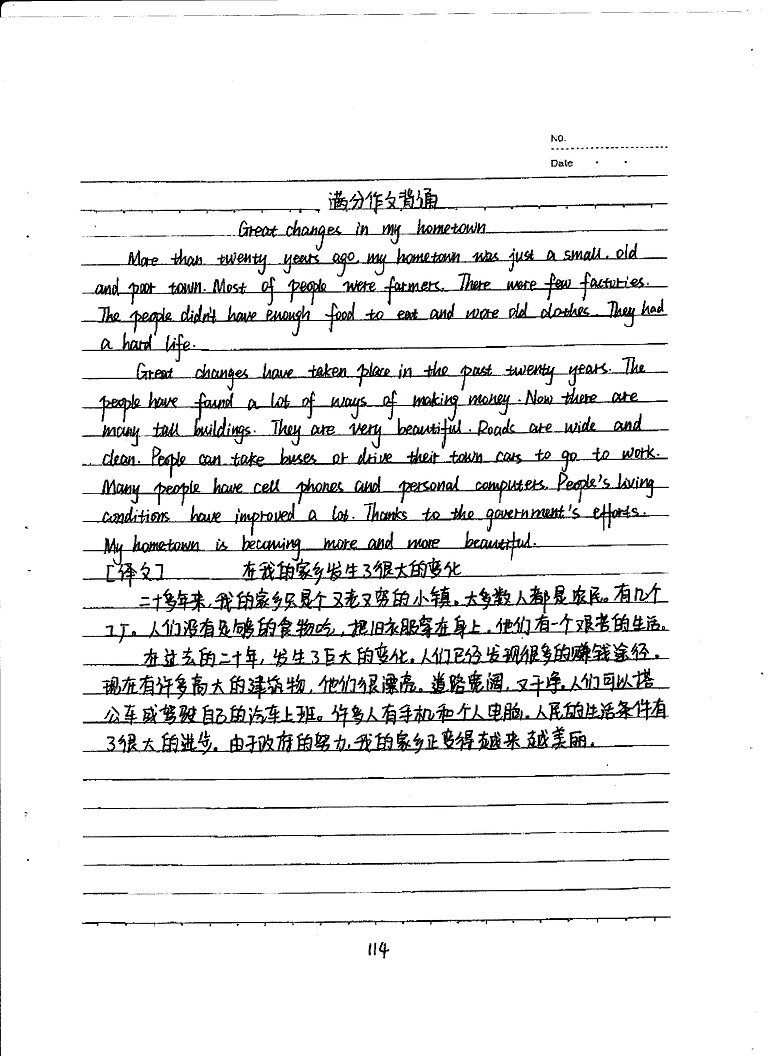 No.
Date
满分作文背诵
Great changes in my hometown
More than twenty years ago, my hometown was just a small, old
and poor town. Most of people were farmers. There were few factories.
The people didn't have enough food to eat and wore old clothes. They had
a hard life.
Great changes have taken place in the past twenty years. The
people have found a lot of ways of making money. Now there are
many tall buildings. They are very beautiful. Roads are wide and
clean. People can take buses or drive their town cars to go to work.
Many people have cell phones and personal computers. People's living
conditions have improved a lot. Thanks to the government's efforts.
My hometown is becoming more and more beautiful.
[译文] 在我的家乡发生了很大的变化
二十多年来,我的家乡只是个又老又穷的小镇。大多数人都是农民。有几个
工厂。人们没有足够的食物吃,把旧衣服穿在身上。他们有一个艰苦的生活。
在过去的二十年,发生了巨大的变化。人们已经发现很多的赚钱途径。
现在有许多高大的建筑物,他们很漂亮。道路宽阔,又干净。人们可以搭
公车或驾驶自己的汽车上班。许多人有手机和个人电脑。人民的生活条件有
了很大的进步。由于政府的努力,我的家乡正变得越来越美丽。
114